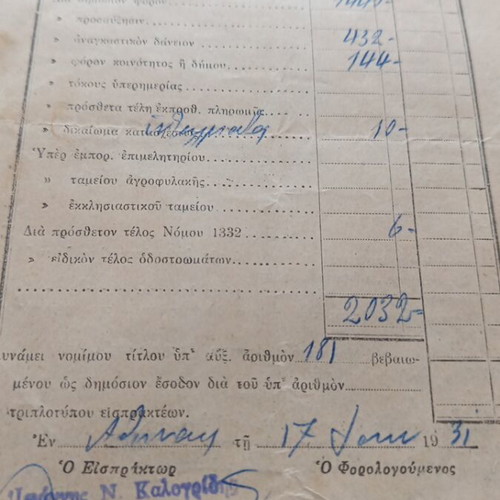 Διὰ δημόσιον φόρον 1440-
» προσαύξησιν
» ἀναγκαστικὸν δάνειον 432-
» φόρον κοινότητος ἢ δήμου 144-
» τόκους ὑπερημερίας
» πρόσθετα τέλη ἐκπροθ. πληρωμῆς
» δικαίωμα 10-
Ὑπὲρ ἐμπορ. ἐπιμελητηρίου
» ταμείου ἀγροφυλακῆς
» ἐκκλησιαστικοῦ ταμείου
Διὰ πρόσθετον τέλος Νόμου 1332 6-
» εἰδικὸν τέλος ὁδοστρωμάτων
2032-
υνάμει νομίμου τίτλου ὑπ' αὔξ. ἀριθμὸν 181 βεβαιω-
μένου ὡς δημόσιον ἔσοδον διὰ τοῦ ὑπ' ἀριθμὸν
τριπλοτύπου εἰσπρακτέων.
Ἐν Αθήναις τῇ 17 19 31
Ὁ Εἰσπράκτωρ Ὁ Φορολογούμενος
Ν. Καλογρίδης